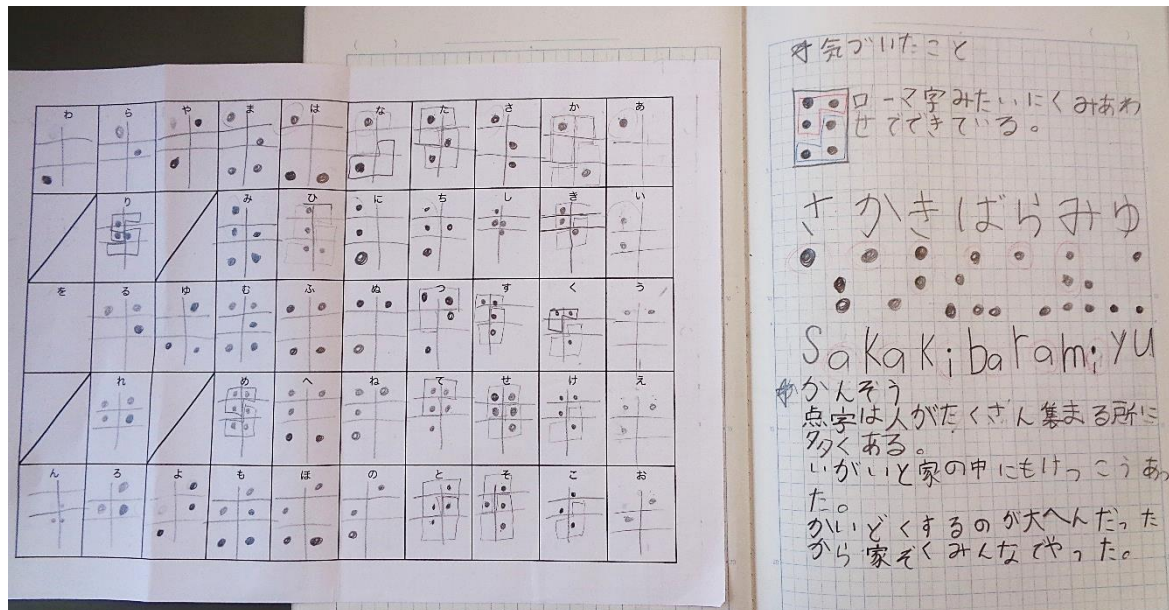 わ ら や ま は な た さ か あ
り み ひ に ち し き い
を る ゆ む ふ ぬ つ す く う
れ め へ ね て せ け え
ん ろ よ も ほ の と そ こ お
気づいたこと
ローマ字みたいにくみあわ
せでできている。
さかきばらみゆ
Sakakibaramiyu
かんそう
点字は人がたくさん集まる所に
多くある。
いがいと家の中にもけっこうあっ
た。
かいどくするのが大へんだった
から家ぞくみんなでやった。